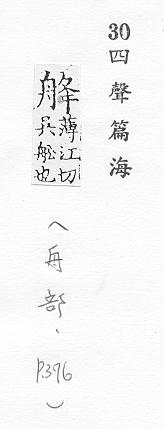 30四聲篇海
舽
薄江切
吳舩也
(舟部、P.396)